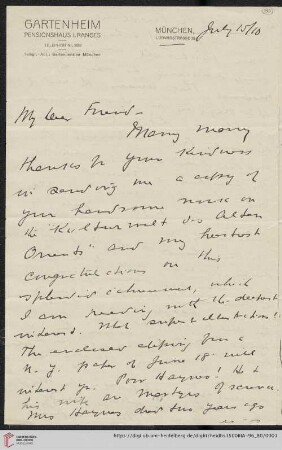 GARTENHEIM
PENSIONSHAUS I. RANGES
MÜNCHEN, July 15/10
My dear Friend -
Many many
thanks for your kindness
in sending me a copy of
your handsome work on
the "Kulturwelt des Alten
Orients" and my heartiest
congratulations on this
splendid achievement, which
I am reading with the deepest
interest. What superb illustrations!
The enclosed clipping from a
N.Y. paper of June 18 will
interest you. Poor Haynes! He &
his wife are martyrs of science.
Mrs Haynes died two years ago
https://digi.ub.uni-heidelberg.de/diglit/